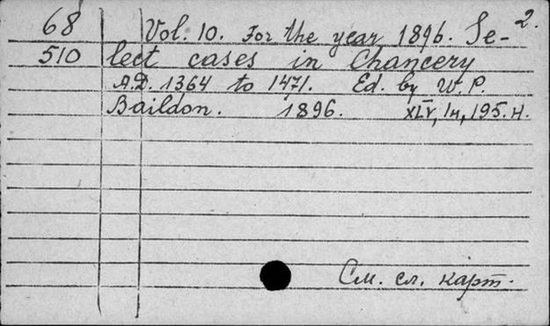 2.
68 Vol. 10. For the year 1896. Se-
510 lect cases in Chancery
A.D. 1364 to 1471. Ed. by W. P.
Baildon. 1896. XLV, 1н, 195. H.
См. сл. карт.